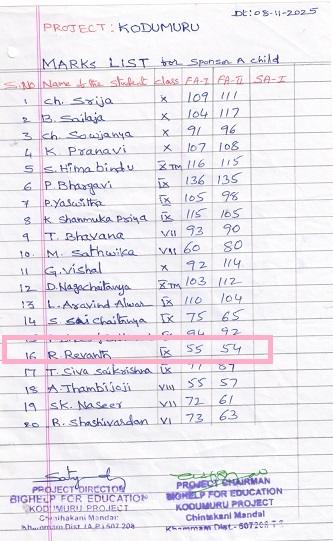 Dt: 08-11-2025
PROJECT: KODUMURU
MARKS LIST for Sponsor A child
S.No Name of the student class FA-I FA-II SA-I
1 Ch. Srija X 109 111
2 B. Sailaja X 104 117
3 Ch. Soujanya X 91 96
4 K. Pranavi X 107 108
5 S. Himabindu X TM 116 115
6 P. Bhargavi IX 136 135
7 P. Yaswitha IX 105 98
8 K. Shanmuka Priya IX 115 105
9 T. Bhavana VII 93 90
10. M. Sathwika VII 60 80
11 G. Vishal X 92 114
12 D. Nagachaitanya X TM 103 112
13 L. Aravind Alwar IX 110 104
14 S. Sai Chaitanya IX 75 65
15 94 92
16 R. Revanth IX 55 54
17 T. Siva Saikrishna IX 87
18 A. Thambiloji VIII 55 57
19 SK. Naseer VII 72 61
20 B. Shashivardan VI 73 63
PROJECT DIRECTOR
BIGHELP FOR EDUCATION
KODUMURU PROJECT
Chintakani Mandal
Khammam Dist. (A.P.) 507 208
PROJECT CHAIRMAN
BIGHELP FOR EDUCATION
KODUMURU PROJECT
Chintakani Mandal
Khammam Dist.- 507208